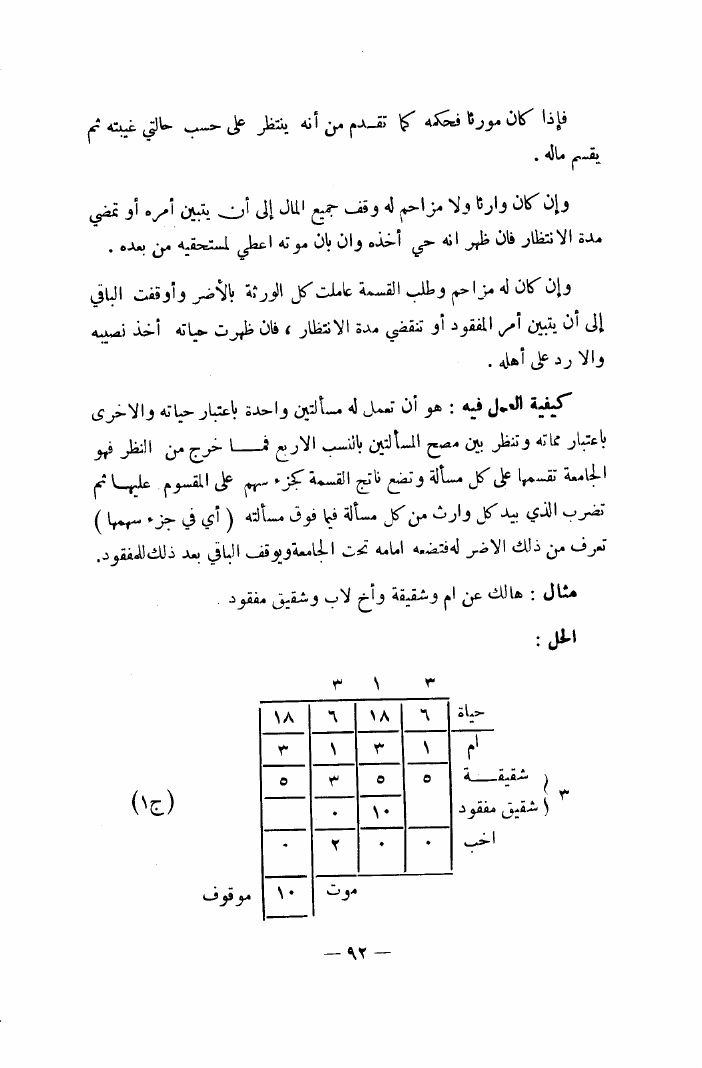 فإذا كان مورثا فحكمه كما تقــدم من أنه ينتظر على حسب حالتي غيبته ثم
يقسم ماله .
وإن كان وارثا ولا مزاحم له وقف جميع المال إلى أن يتبين أمره أو تمضي
مدة الانتظار فان ظهر انه حي أخذه وان بان موته اعطي لمستحقيه من بعده .
وإن كان له مزاحم وطلب القسمة عاملت كل الورثة بالأضر وأوقفت الباقي
إلى أن يتبين أمر المفقود أو تنقضي مدة الانتظار ، فان ظهرت حياته أخذ نصيبه
والا رد على أهله .
كيفية العمل فيه : هو أن تعمل له مسألتين واحدة باعتبار حياته والاخرى
باعتبار مماته وتنظر بين مصح المسألتين بالنسب الاربع فمــا خرج من النظر فهو
الجامعة تقسمها على كل مسألة وتضع ناتج القسمة كجزء سهم على المقسوم عليهــا ثم
تضرب الذي بيد كل وارث من كل مسألة فيما فوق مسألته ( أي في جزء سهمها )
تعرف من ذلك الاضر له فتضعه امامه تحت الجامعة ويوقف الباقي بعد ذلك للمفقود.
مثال : هالك عن ام وشقيقة وأخ لاب وشقيق مفقود .
الحل :
٣ ١ ٣
حياة ٦ ١٨ ٦ ١٨
أم ١ ٣ ١ ٣
شقيقــة ٥ ٥ ٣ ٥
٣ شقيق مفقود ١٠ ٠
(ج١)
اخب ٠ ٠ ٢ ٠
موت ١٠ موقوف
— ٩٢ —